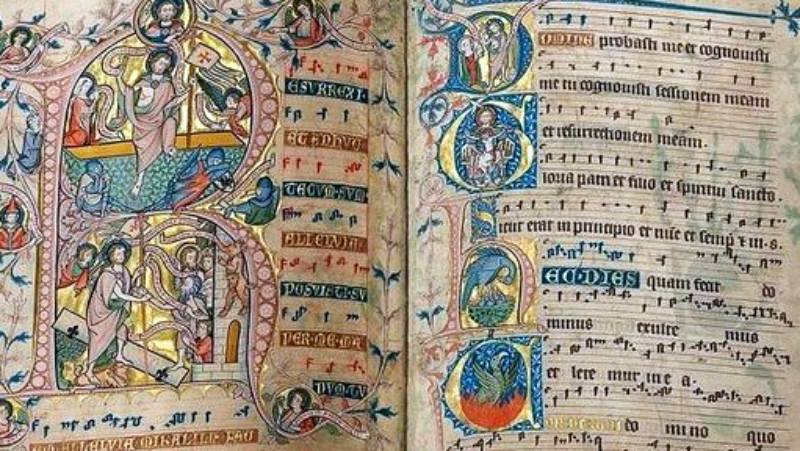 ESVRREXI
ET ADHVC
TECVM SVM
ALLELVIA
POSVISTI SV
PER ME MA
NVM TV
ALLELVIA MIRABILIS
D OMINE probasti me et cognouisti
me tu cognouisti sessionem meam
et resurrectionem meam.
G loria patri et filio et spiritui sancto.
S icut erat in principio et
H EC DIES quam fecit do
minus exulte mus
et lete mur in e a.
do mi no quo